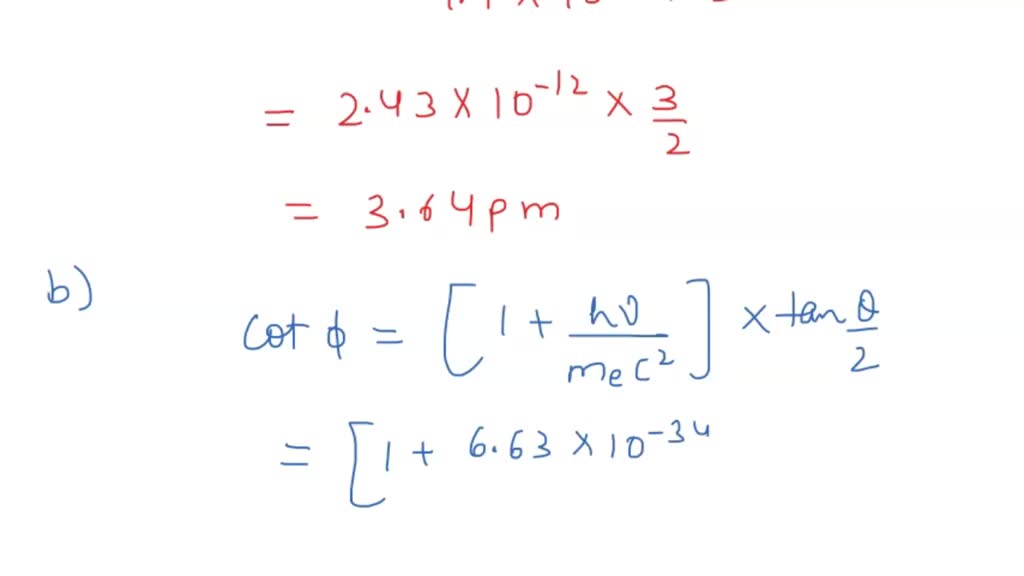 = 2.43 × 10^-12 × 3/2
= 3.64 pm
b)
cot ϕ = [1 + hν/(m_e c^2)] × tan θ/2
= [1 + 6.63 × 10^-34